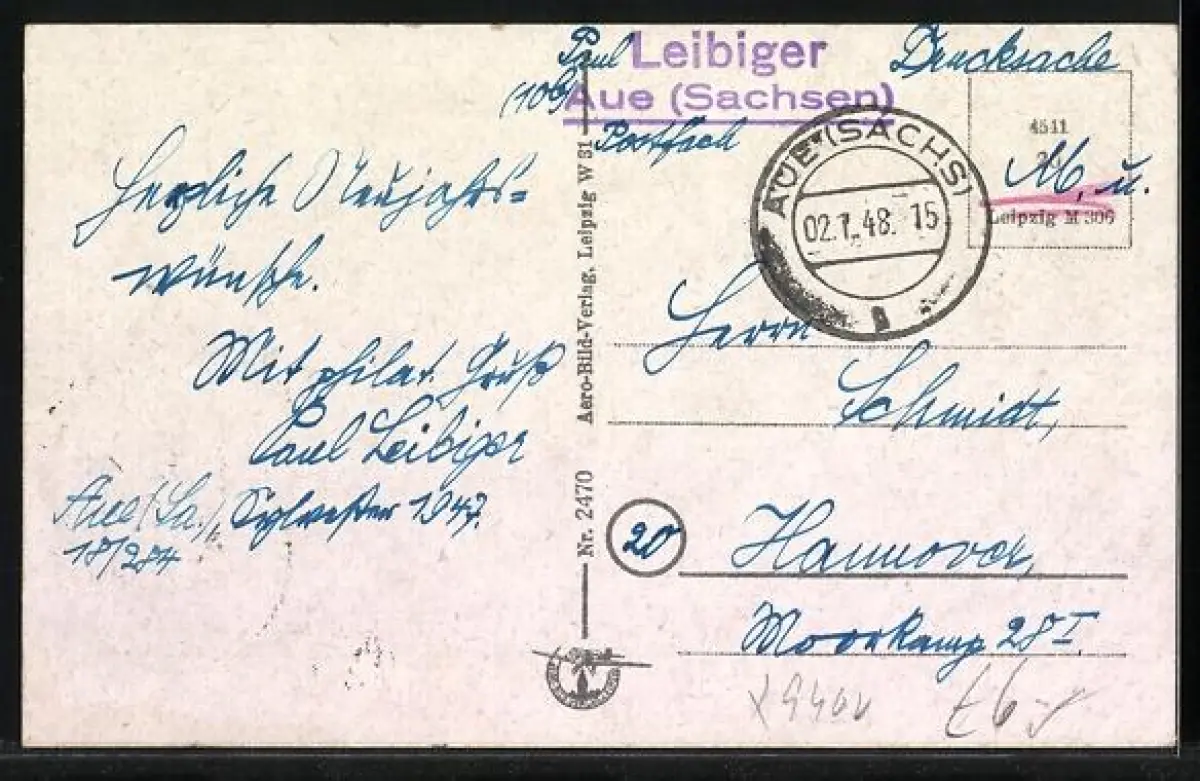 Paul Leibiger
(10b) Aue (Sachsen)
Postfach
Drucksache
4511
M, u.
Leipzig M 306
AUE (SACHS)
02.1.48. 15
a
Herzliche Neujahrs-
wünsche.
Mit philat. Gruß
Paul Leibiger
Aue (Sa.), Sylvester 1947.
18/284
Aero-Bild-Verlag, Leipzig W 31
Nr. 2470
Herrn
Schmidt,
20
Hannover,
Moorkamp 28 I.